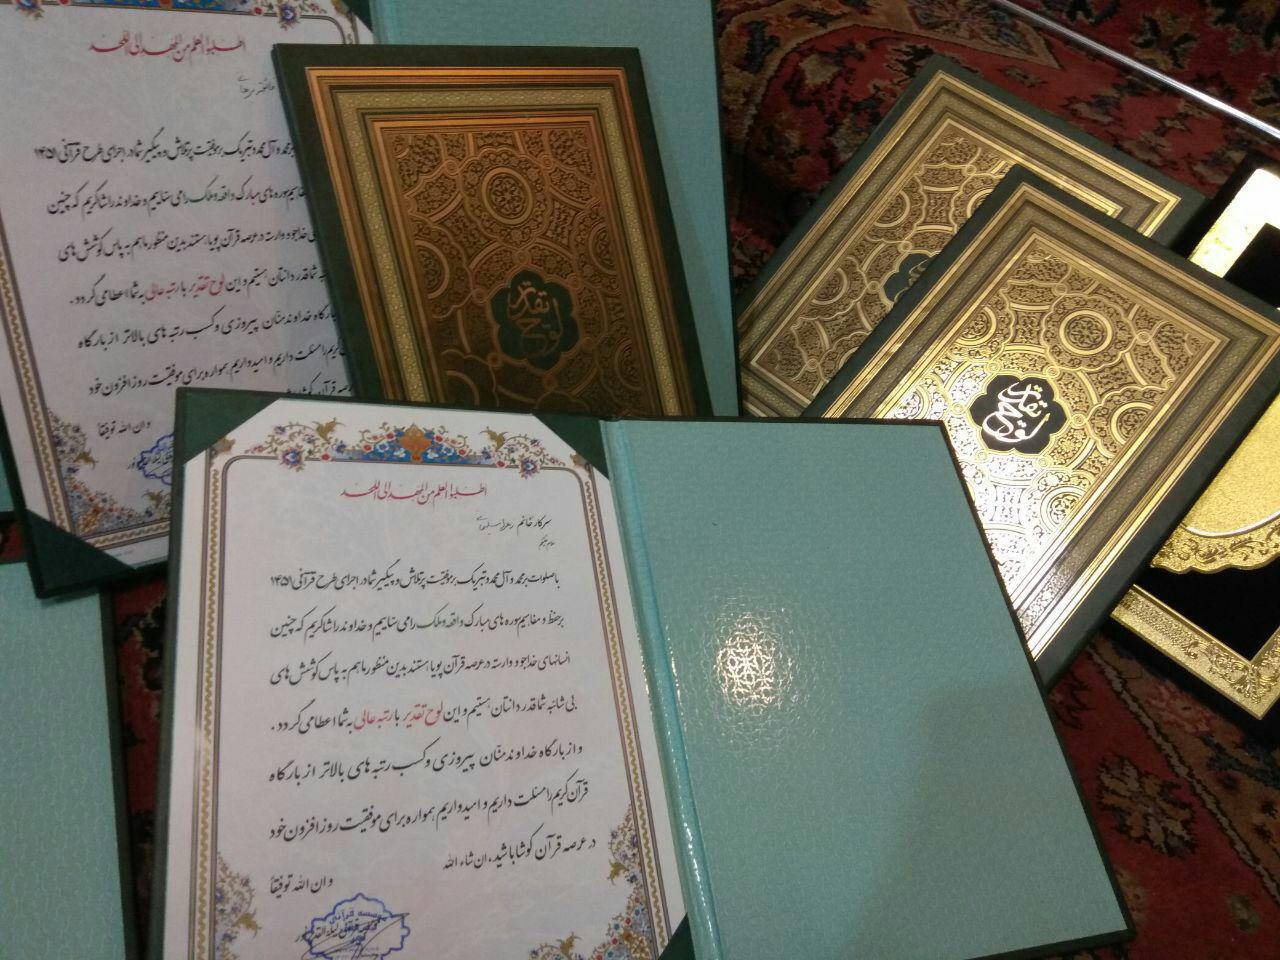 اطلبوا العلم من المهد الی اللحد
با صلوات بر محمد و آل محمد و تبریک بر موفقیت پرتلاش و پیگیر شما در اجرای طرح قرآنی ۱۴۵۱
بر حفظ و مفاهیم سوره های مبارک واقعه و ملک را می ستاییم و خداوند را شاکریم که چنین
انسانهای خداجو و وارسته در عرصه قرآن پویا هستند بدین منظور ما هم به پاس کوشش های
بی شائبه شما قدردانتان هستیم و این لوح تقدیر با رتبه عالی به شما اعطا می گردد.
و از بارگاه خداوند منّان پیروزی و کسب رتبه های بالاتر از بارگاه
قرآن کریم را مسئلت داریم و امیدواریم همواره برای موفقیت روز افزون خود
در عرصه قرآن کوشا باشید، ان شاء الله
و ان الله توفیقاً
موسسه قرآنی
اطلبوا العلم من المهد الی اللحد
بر محمد و آل محمد و تبریک بر موفقیت پرتلاش و پیگیر شما در اجرای طرح قرآنی ۱۴۵۱
مفاهیم سوره های مبارک واقعه و ملک را می ستاییم و خداوند را شاکریم که چنین
خداجو و وارسته در عرصه قرآن پویا هستند بدین منظور ما هم به پاس کوشش های
شما قدردانتان هستیم و این لوح تقدیر با رتبه عالی به شما اعطا می گردد.
بارگاه خداوند منّان پیروزی و کسب رتبه های بالاتر از بارگاه
کریم را مسئلت داریم و امیدواریم همواره برای موفقیت روز افزون خود
عرصه قرآن
و ان الله توفیقاً
لوح تقدیر
لوح تقدیر